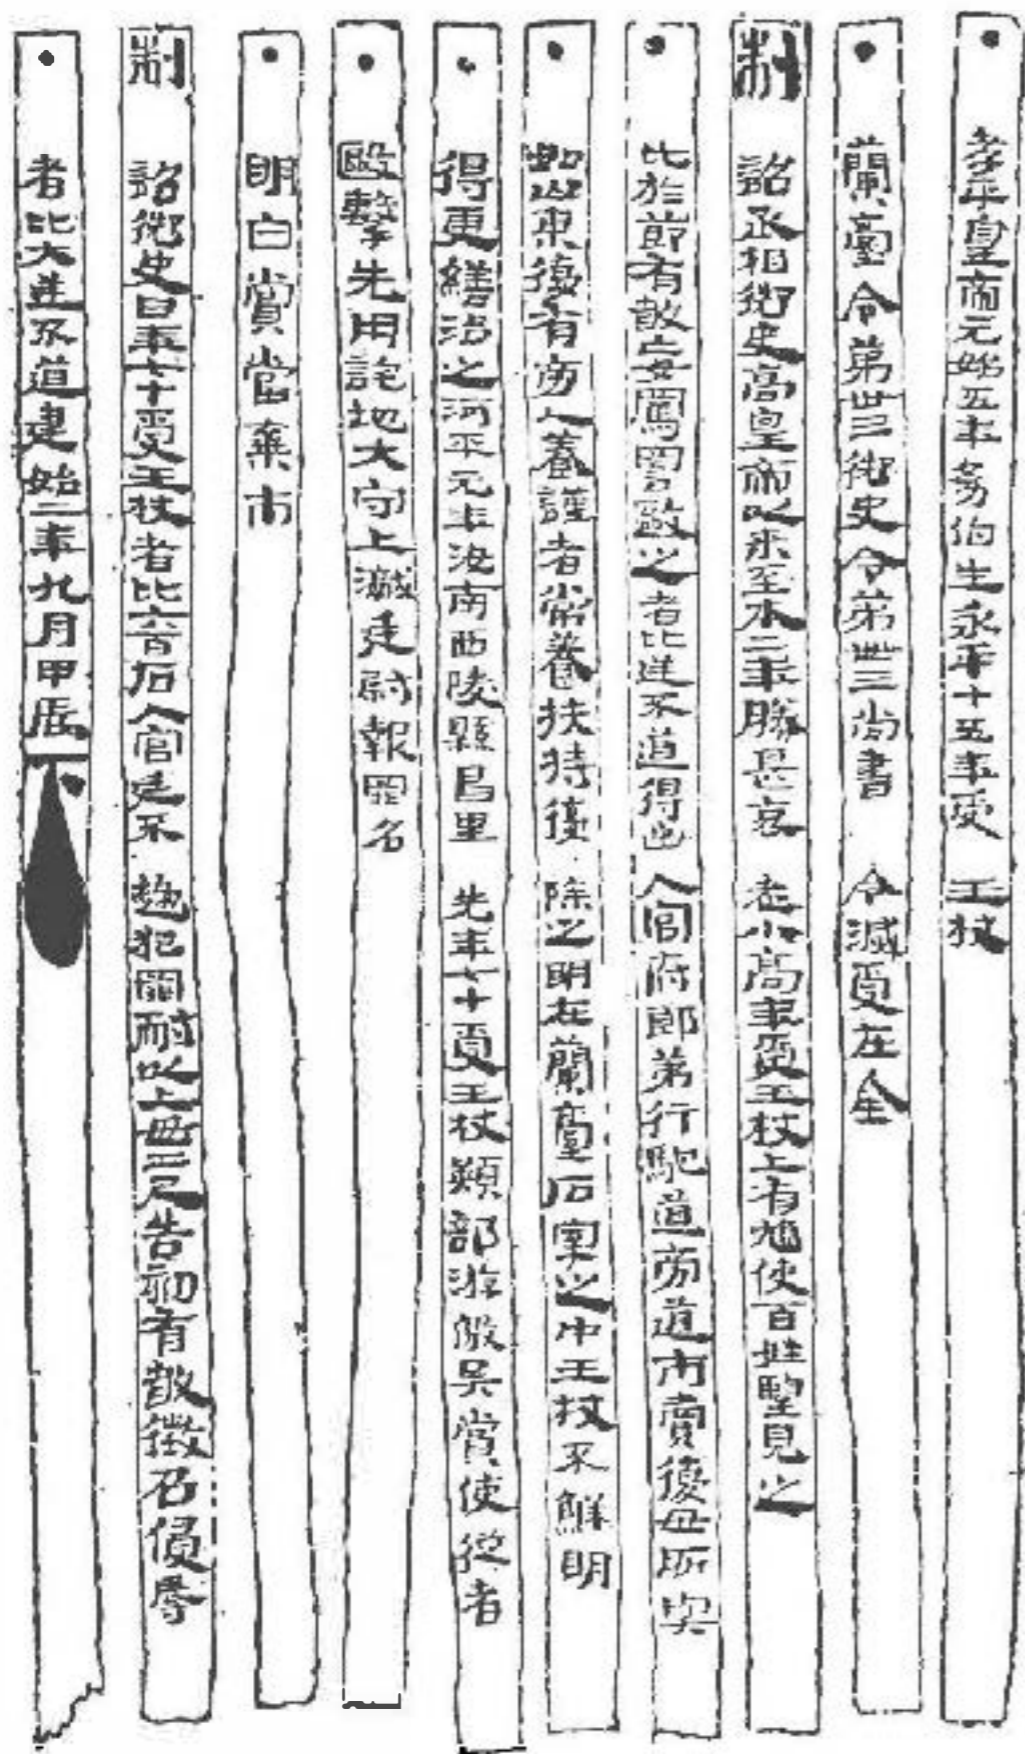 孝平皇帝元始五年幼伯生永平十五年受王杖
蘭臺令第卅三御史令第卌三尚書令滅受在金
制詔丞相御史高皇帝以來至本二年勝甚哀老小高年受王杖上有鳩使百姓望見之
比於節有敢妄罵詈毆之者比逆不道得出入官府郎第行馳道旁道市賣復毋所與
如山東復有旁人養謹者常養扶持復除之明在蘭臺石室之中王杖不鮮明
得更繕治之河平元年汝南西陵縣昌里先年七十受王杖熲部游徼吳賞使從者
毆擊先用詫地大守上讞廷尉報罪名
明白賞當棄市
制詔御史曰年七十受王杖者比六百石入官廷不趨犯罪耐以上毋二尺告劾有敢徵召侵辱
者比大逆不道建始二年九月甲辰下